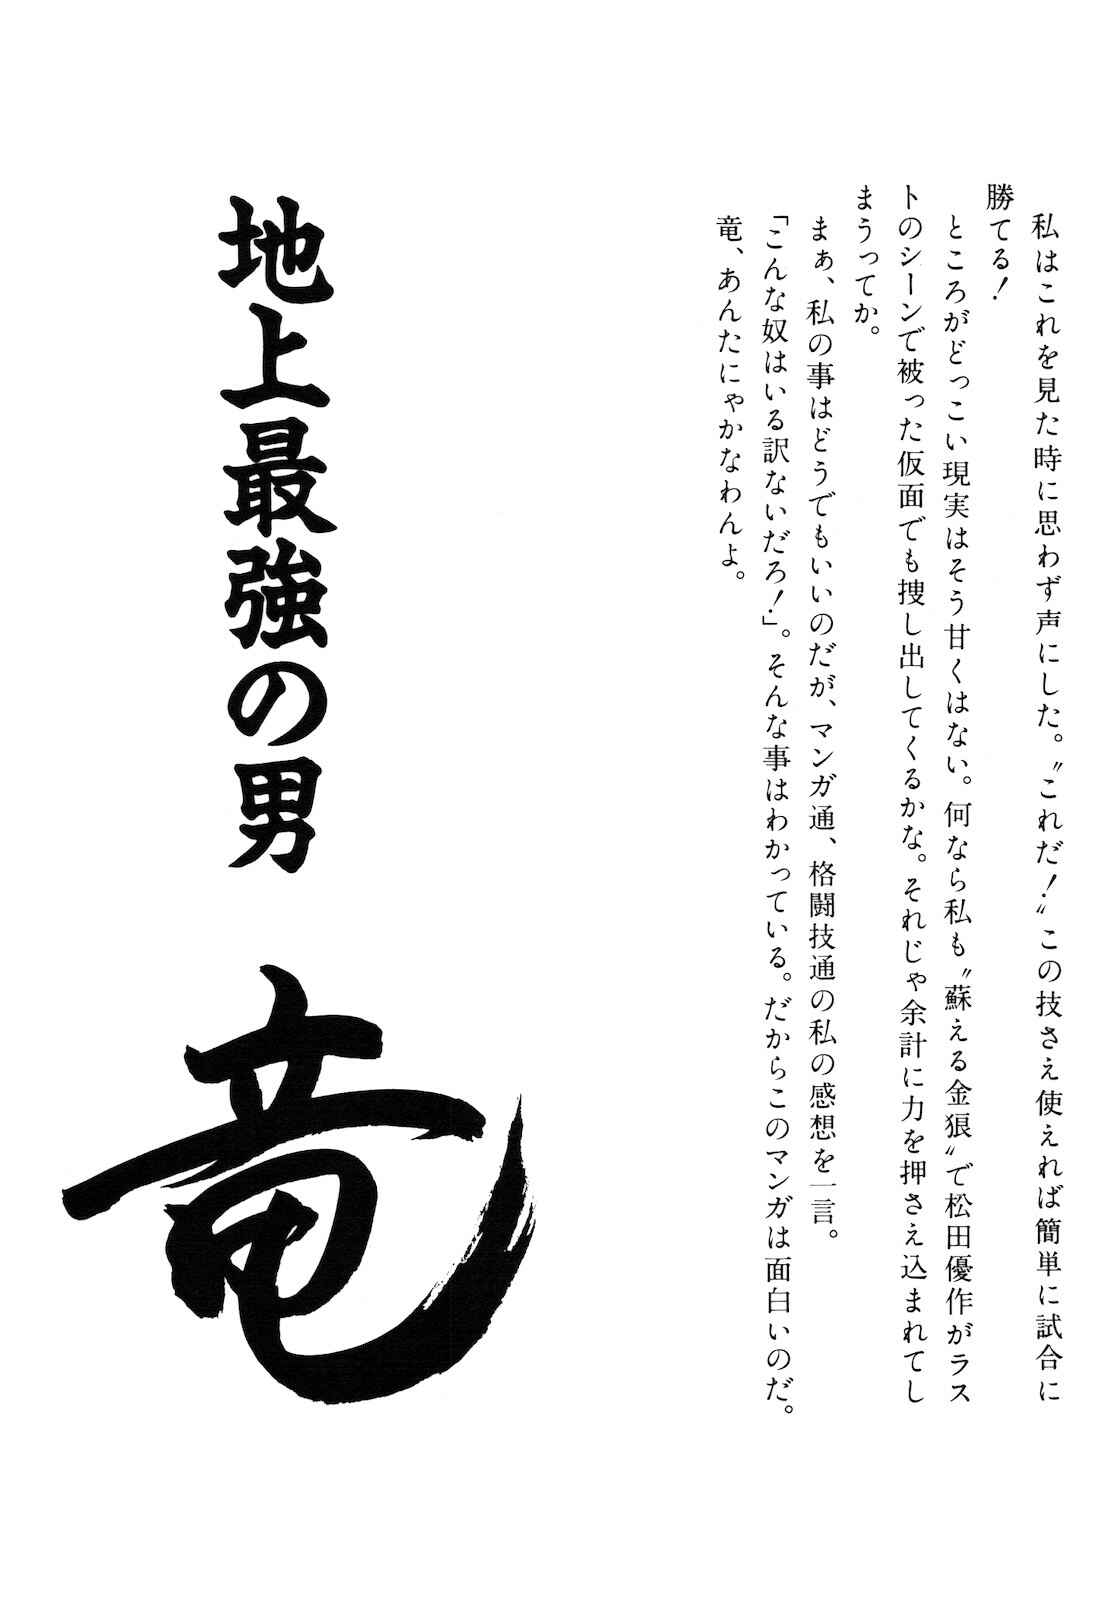 私はこれを見た時に思わず声にした。〝これだ！〟この技さえ使えれば簡単に試合に
勝てる！
ところがどっこい現実はそう甘くはない。何なら私も〝蘇える金狼〟で松田優作がラス
トのシーンで被った仮面でも捜し出してくるかな。それじゃ余計に力を押さえ込まれてし
まうってか。
まぁ、私の事はどうでもいいのだが、マンガ通、格闘技通の私の感想を一言。
「こんな奴はいる訳ないだろ！」。そんな事はわかっている。だからこのマンガは面白いのだ。
竜、あんたにゃかなわんよ。
地上最強の男
竜